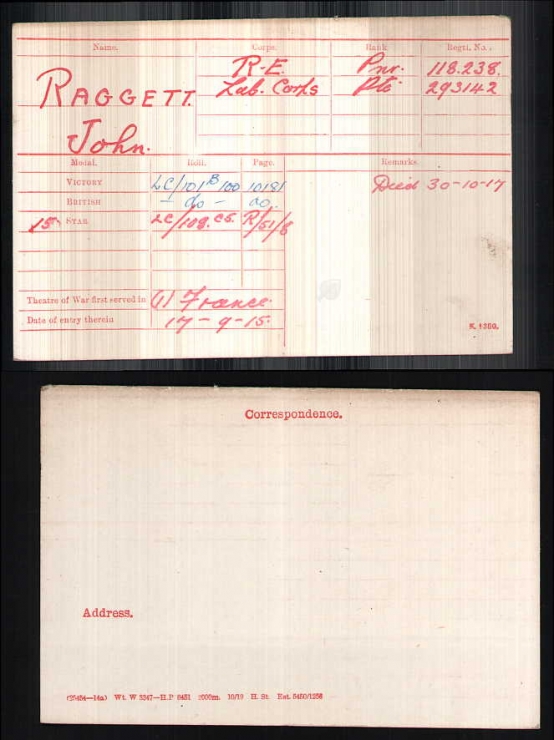 Name. Corps. Rank Regtl. No.
RAGGETT. R.E. Pnr. 118.238.
Lab. Corps Pte 293142
John.
Medal. Roll. Page. Remarks.
VICTORY LC/101 B 100 10191 Died 30-10-17
BRITISH - do - do.
15 STAR LC/108. C5. R/51/8
Theatre of War first served in (1) France
Date of entry therein 17-9-15.
K. 1380.
Correspondence.
Address.
(25454—14a) Wt. W 3347—H.P 8481 2000m. 10/19 H. St.